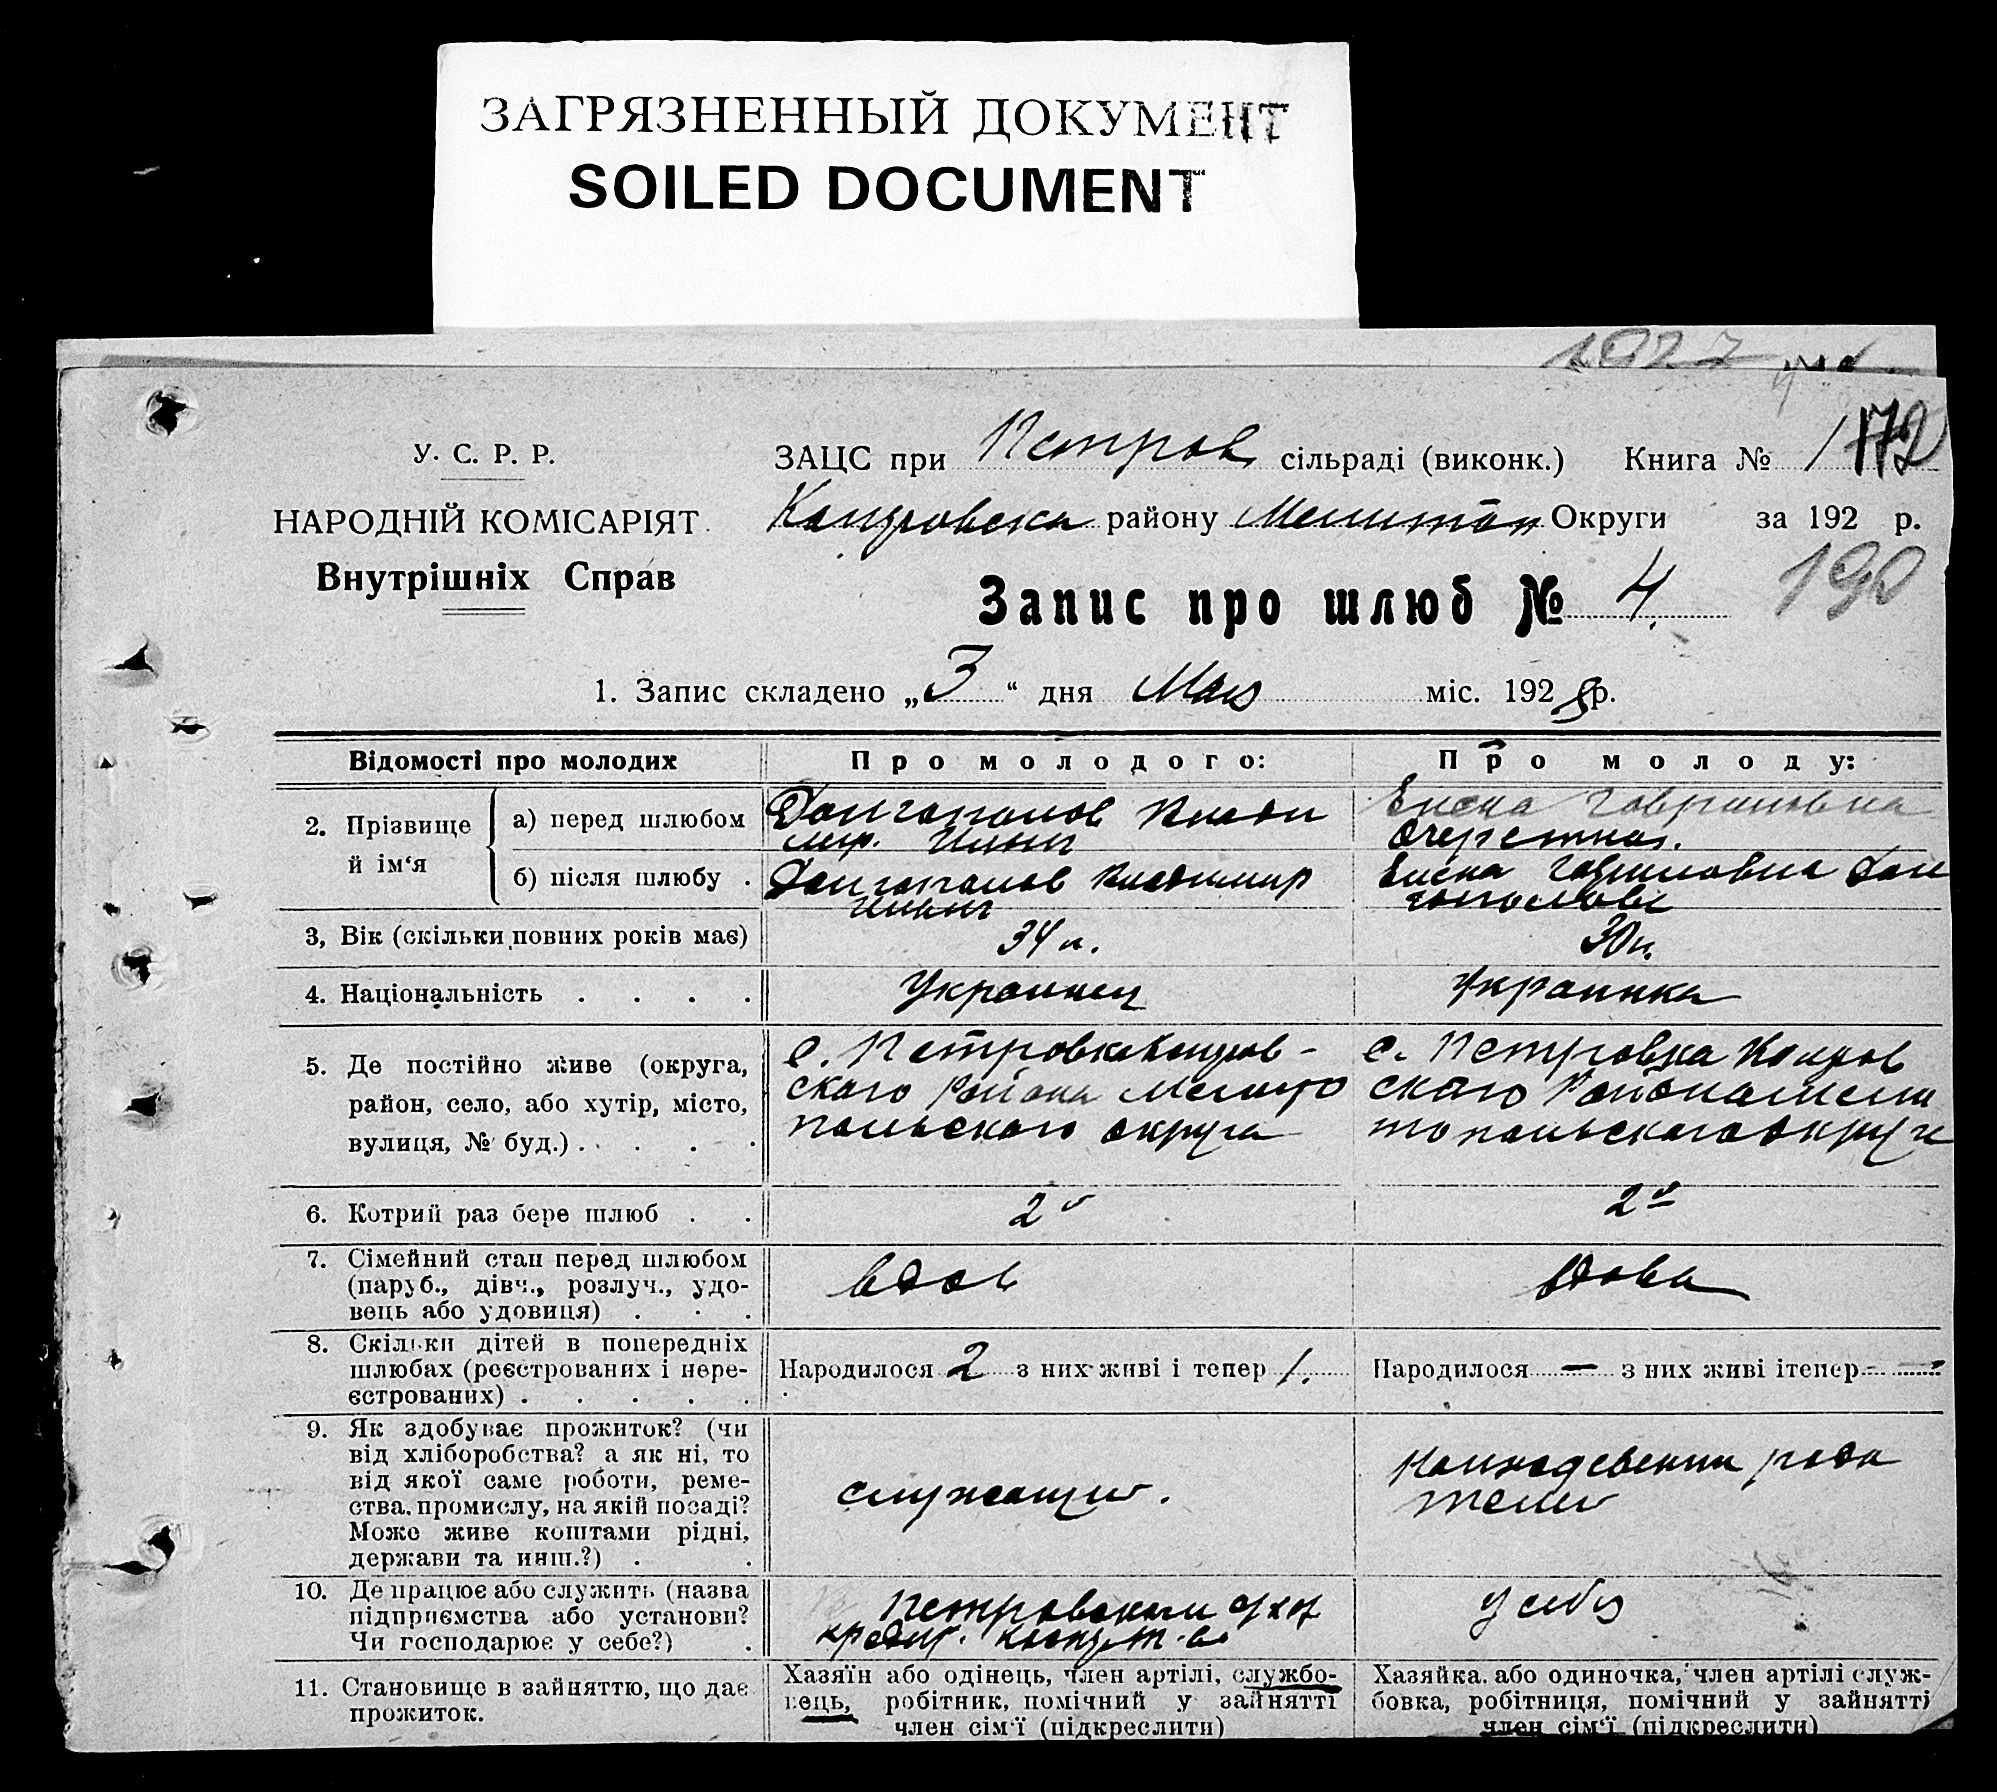 ЗАГРЯЗНЕННЫЙ ДОКУМЕНТ
SOILED DOCUMENT
1927
У. С. Р. Р.
НАРОДНІЙ КОМІСАРІЯТ
Внутрішніх Справ
ЗАЦС при Петров сільраді (виконк.) Книга № 172
района району Мелитоп Округи за 192 р.
190
Запис про шлюб № 4
1. Запис складено „3“ дня Мая міс. 1928 р.
Відомості про молодих
Про молодого:
Про молоду:
2. Прізвище й ім‘я
а) перед шлюбом
Долгополов Влади
мир. Ильич
Елена Гавриловна
Очеретная.
б) після шлюбу .
Долгополов Владимир
Ильич
Елена Гавриловна Дол
гополова
3, Вік (скільки повних років має)
34 л.
30 л.
4. Національність . . . .
Украинец
Украинка
5. Де постійно живе (округа,
район, село, або хутір, місто,
вулиця, № буд.) . . . .
с. Петровка
ского района Мелито
польского округа
с. Петровка
ского Района Мели
топольского округа
6. Котрий раз бере шлюб . .
2й
2й
7. Сімейний стан перед шлюбом
(паруб., дівч., розлуч., удо-
вець або удовиця) . . .
вдов
вдова
8. Скільки дітей в попередніх
шлюбах (реєстрованих і нере-
єстрованих) . . . . .
Народилося 2 з них живі і тепер 1.
Народилося — з них живі ітепер —
9. Як здобуває прожиток? (чи
від хліборобства? а як ні, то
від якої саме роботи, реме-
ства, промислу, на якій посаді?
Може живе коштами рідні,
держави та инш.?) . .
служащий.
на иждевении роди
телей
10. Де працює або служить (назва
підприємства або установи?
Чи господарює у себе?) .
Петровском с/хоз
кредит. т-ве
у себя
11. Становище в зайняттю, що дає
прожиток.
Хазяїн або одінець, член артілі, службо-
вець, робітник, помічний у зайнятті
член сім‘ї (підкреслити)
Хазяйка, або одиночка, член артілі служ-
бовка, робітниця, помічний у зайнятті
член сім‘ї (підкреслити)